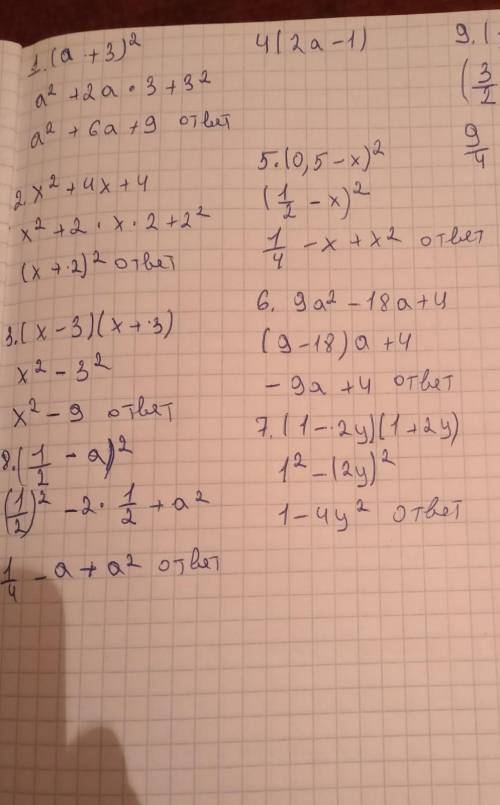 1.(a+3)²
a²+2a·3+3²
a²+6a+9 ответ
2.x²+4x+4
x²+2·x·2+2²
(x+2)² ответ
3.(x-3)(x+3)
x²-3²
x²-9 ответ
8.(1/2-a)²
(1/2)²-2·1/2+a²
1/4-a+a² ответ
4(2a-1)
5.(0,5-x)²
(1/2-x)²
1/4-x+x² ответ
6. 9a²-18a+4
(9-18)a+4
-9a+4 ответ
7.(1-2y)(1+2y)
1²-(2y)²
1-4y² ответ
9.(
(3/2
9/4